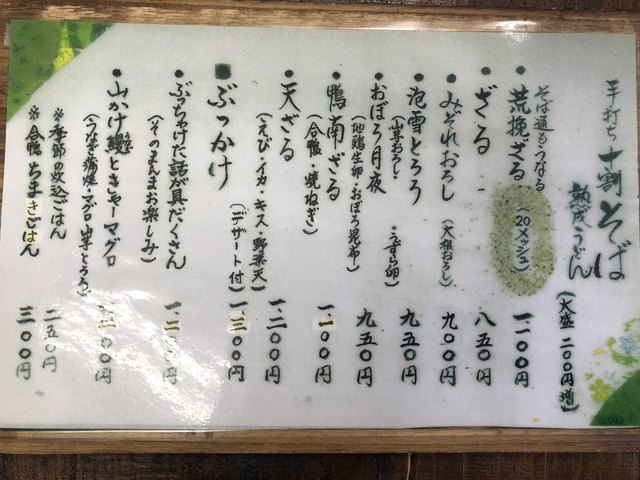 手打ち 十割そば
熟成うどん
(大盛 二〇〇円増)
そば通もうなる
●荒挽ざる (20メッシュ) 一一〇〇円
●ざる 八五〇円
●みぞれおろし (大根おろし) 九〇〇円
●泡雪とろろ (山芋おろし・うずら卵) 九五〇円
●おぼろ月夜 (地鶏生卵・おぼろ昆布) 九五〇円
●鴨南ざる (合鴨・焼ねぎ) 一、一〇〇円
●天ざる (えび・イカ・キス・野菜天) 一、二〇〇円
■ぶっかけ (デザート付) 一、三〇〇円
●ぶっちゃけた話が具だくさん
(そのまんまお楽しみ)
●山かけ鰻ときゃーマグロ
(うなぎ蒲焼・マグロ・山芋とろろ)
※季節の炊込ごはん 二五〇円
※合鴨ちまきごはん 三〇〇円